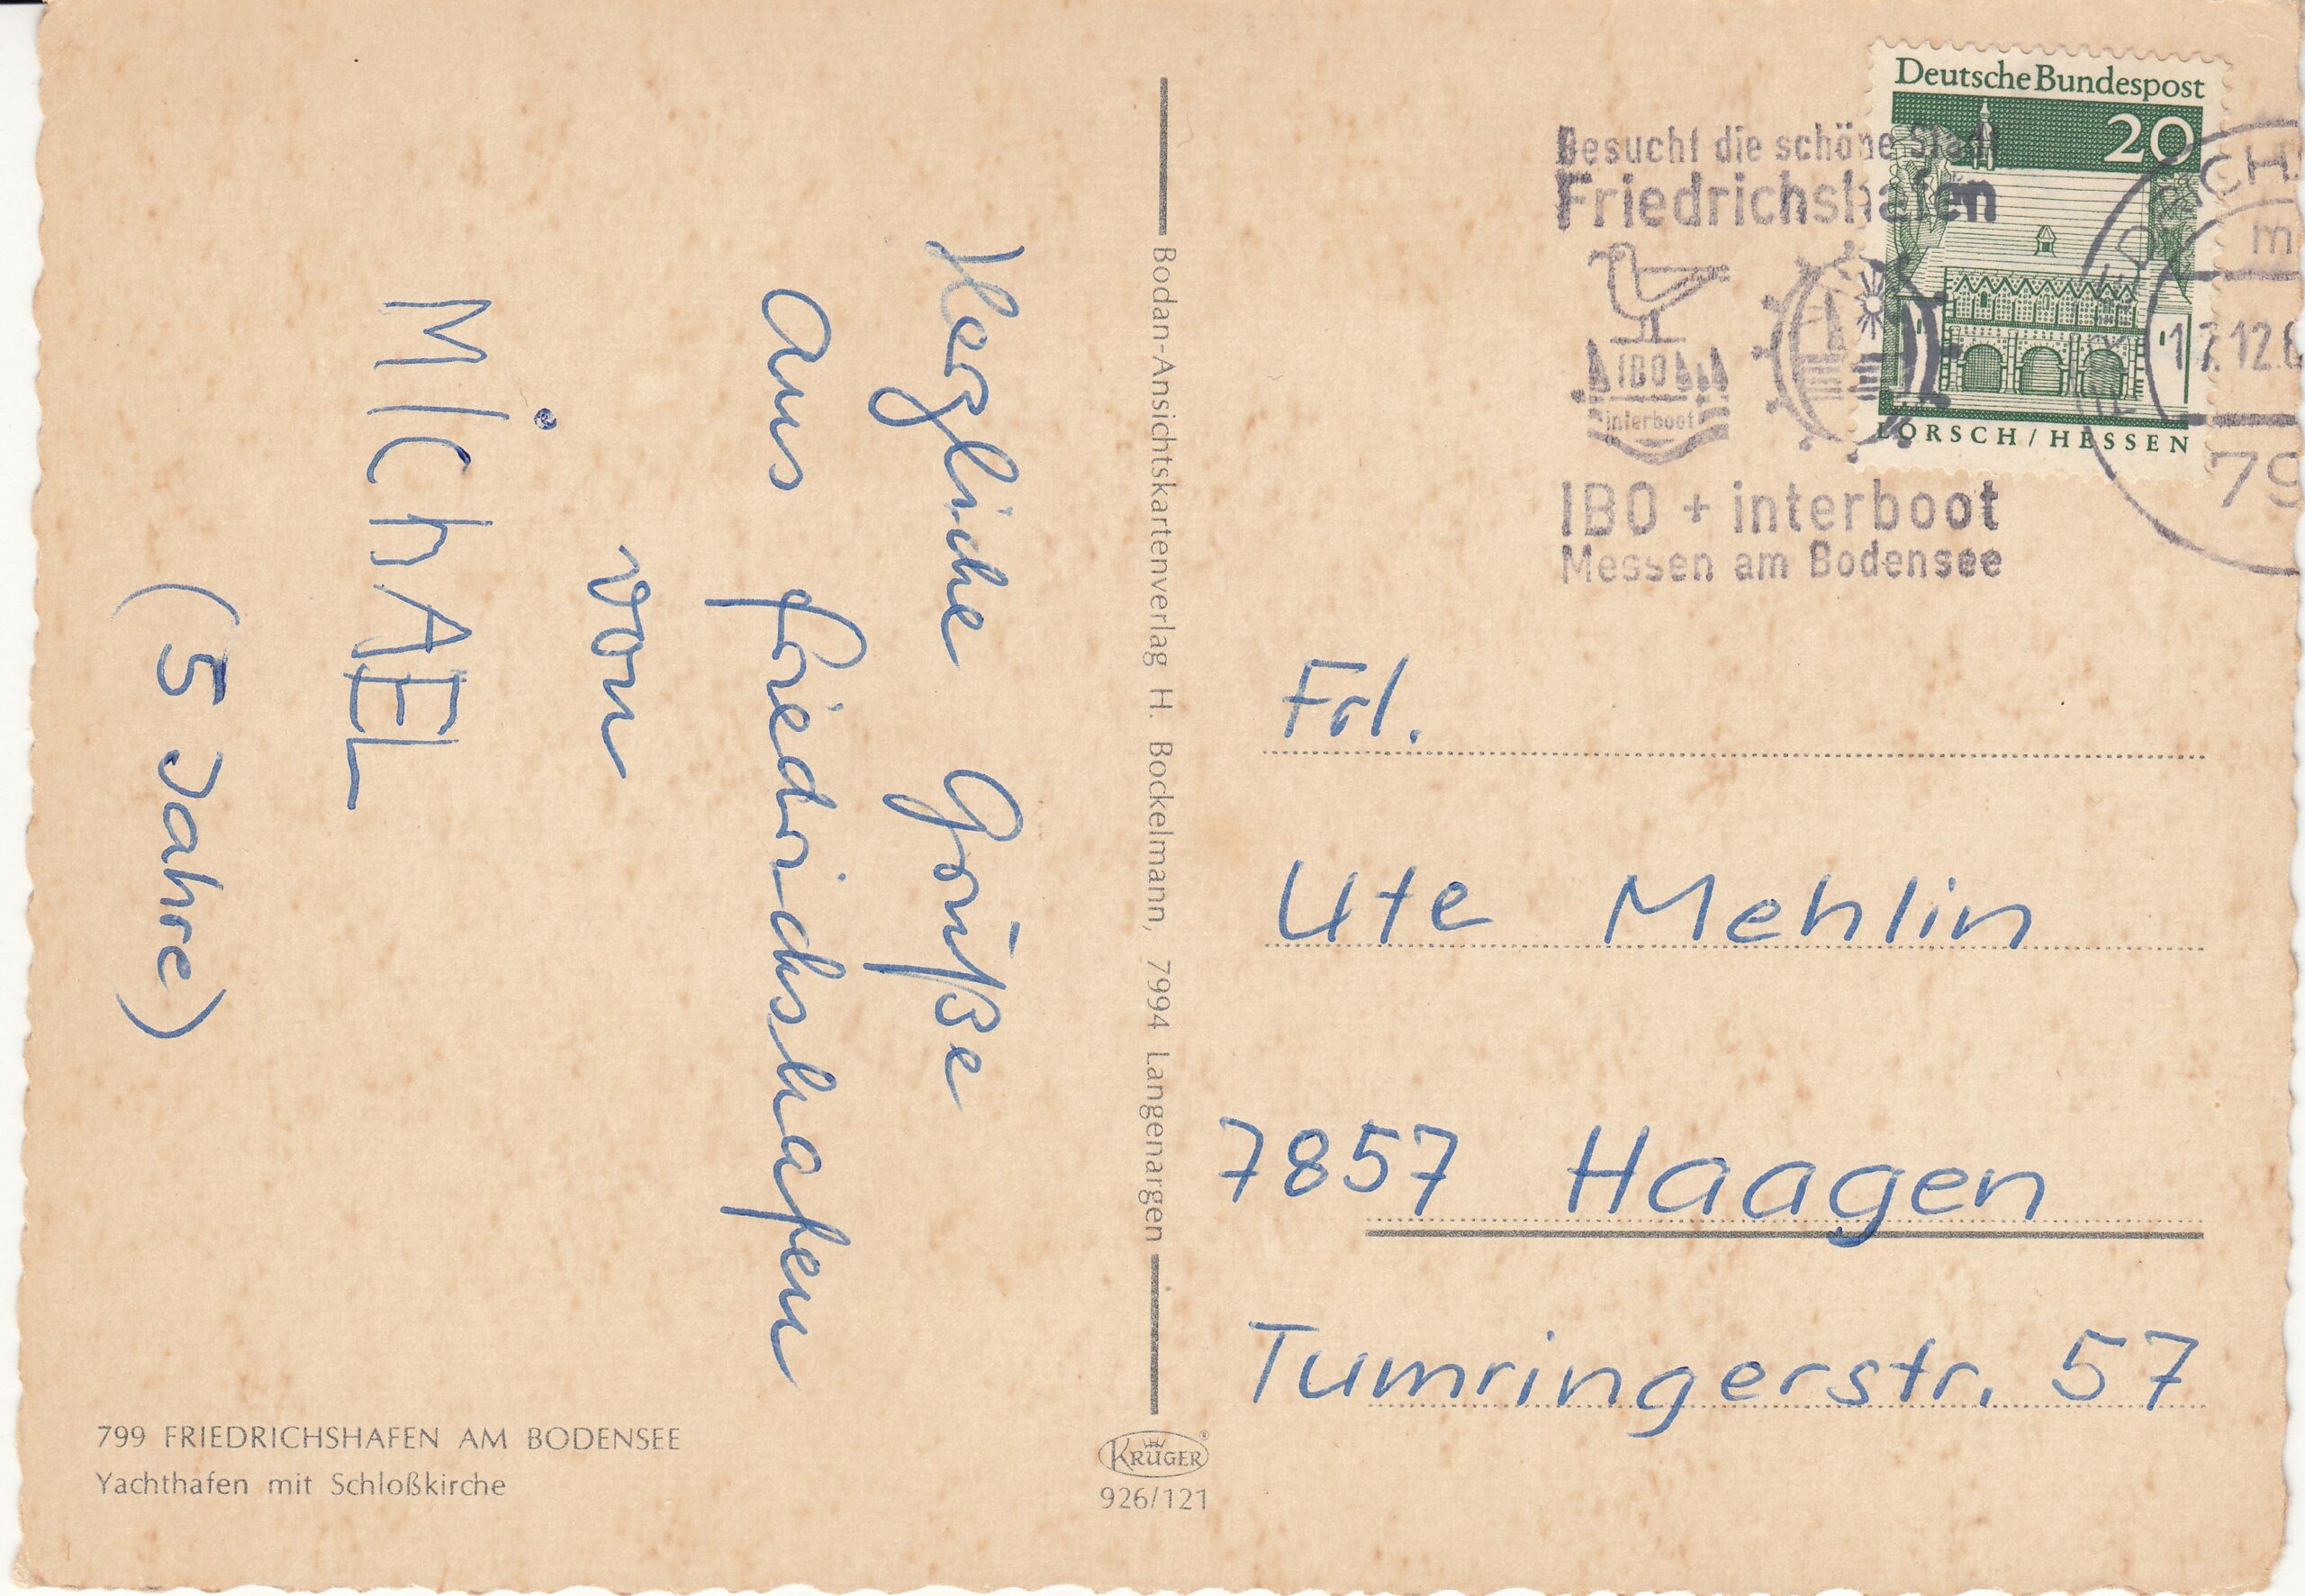 Herzliche Grüße
aus Friedrichshafen
von
MIChAEL
(5 Jahre)
799 FRIEDRICHSHAFEN AM BODENSEE
Yachthafen mit Schloßkirche
Bodan-Ansichtskartenverlag H. Bockelmann, 7994 Langenargen
KRÜGER
926/121
Besucht die schöne Stadt
Friedrichshafen
IBO
interboot
IBO + interboot
Messen am Bodensee
Deutsche Bundespost
20
LORSCH / HESSEN
79
Frl.
Ute Mehlin
7857 Haagen
Tumringerstr. 57